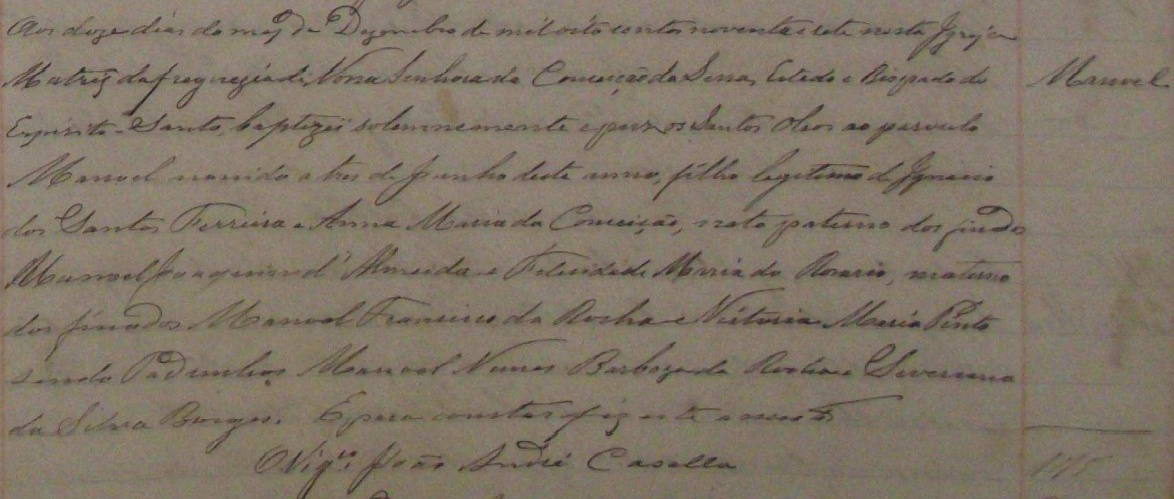 Aos doze dias do mez de Dezembro de mil oito centos noventa e sete nesta Igreja
Matriz da freguezia de Nossa Senhora da Conceição da Serra, Estado e Bispado do
Manoel
Espirito-Santo, baptizei solemnemente e puz os Santos Oleos ao parvulo
Manoel nascido a tres de Junho deste anno, filho legitimo de Ignacio
dos Santos Ferreira e Anna Maria da Conceição, neto paterno dos finados
Manoel Joaquim d'Almeida e Felicidade Maria do Rosario, materno
dos finados Manoel Francisco da Rocha e Victoria Maria Pinto
sendo Padrinhos Manoel Nunes Barboza da Rocha e Severiana
da Silva Borges. E para constar fiz este assento
O Vigº. João André Casella